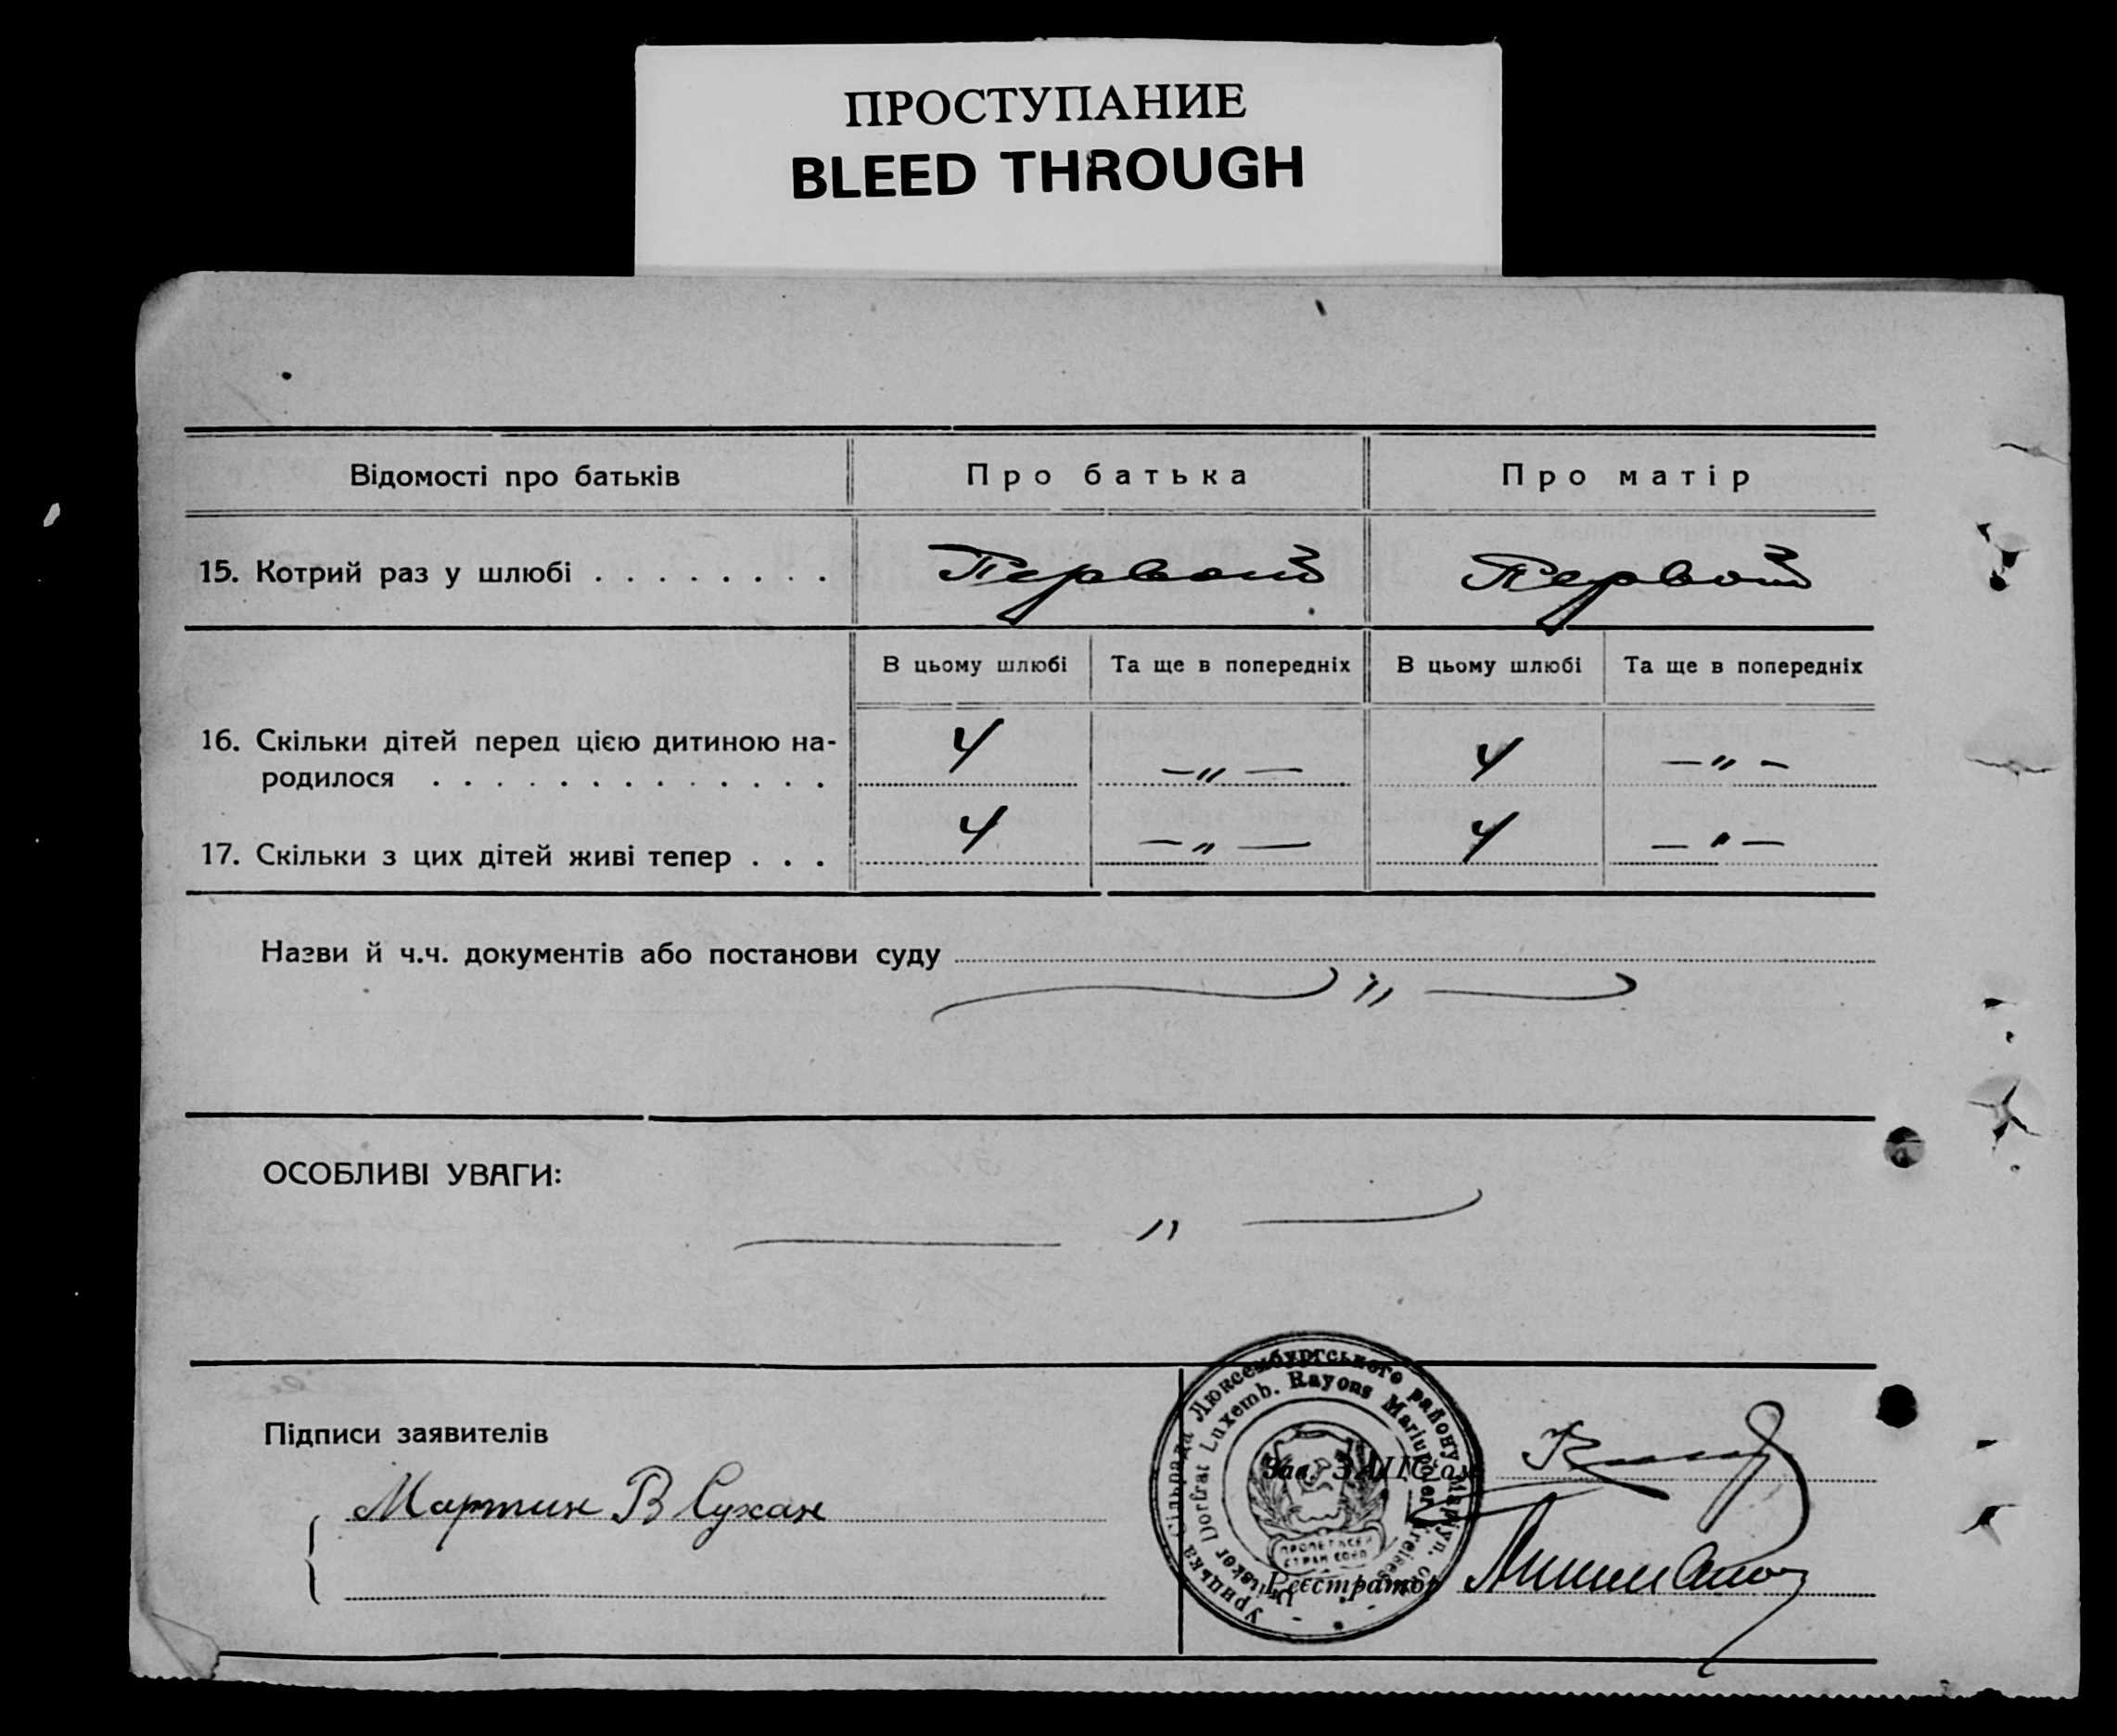 ПРОСТУПАНИЕ
BLEED THROUGH
Відомості про батьків
Про батька
Про матір
15. Котрий раз у шлюбі . . . . . . . .
Первый
Первый
В цьому шлюбі
Та ще в попередніх
В цьому шлюбі
Та ще в попередніх
16. Скільки дітей перед цією дитиною на-
родилося . . . . . . . . . . . . .
4
— „ —
4
— „ —
17. Скільки з цих дітей живі тепер . . .
4
— „ —
4
— „ —
Назви й ч.ч. документів або постанови суду
— „ —
ОСОБЛИВІ УВАГИ:
— „ —
Підписи заявителів
Мартин В Сухан
Урицька Сільрада Люксембургського району Маріуп.
Uritsker Dorfrat Luxemb. Rayons Mariupoler Kreises
Зав. ЗАГС'ом
Реєстратор